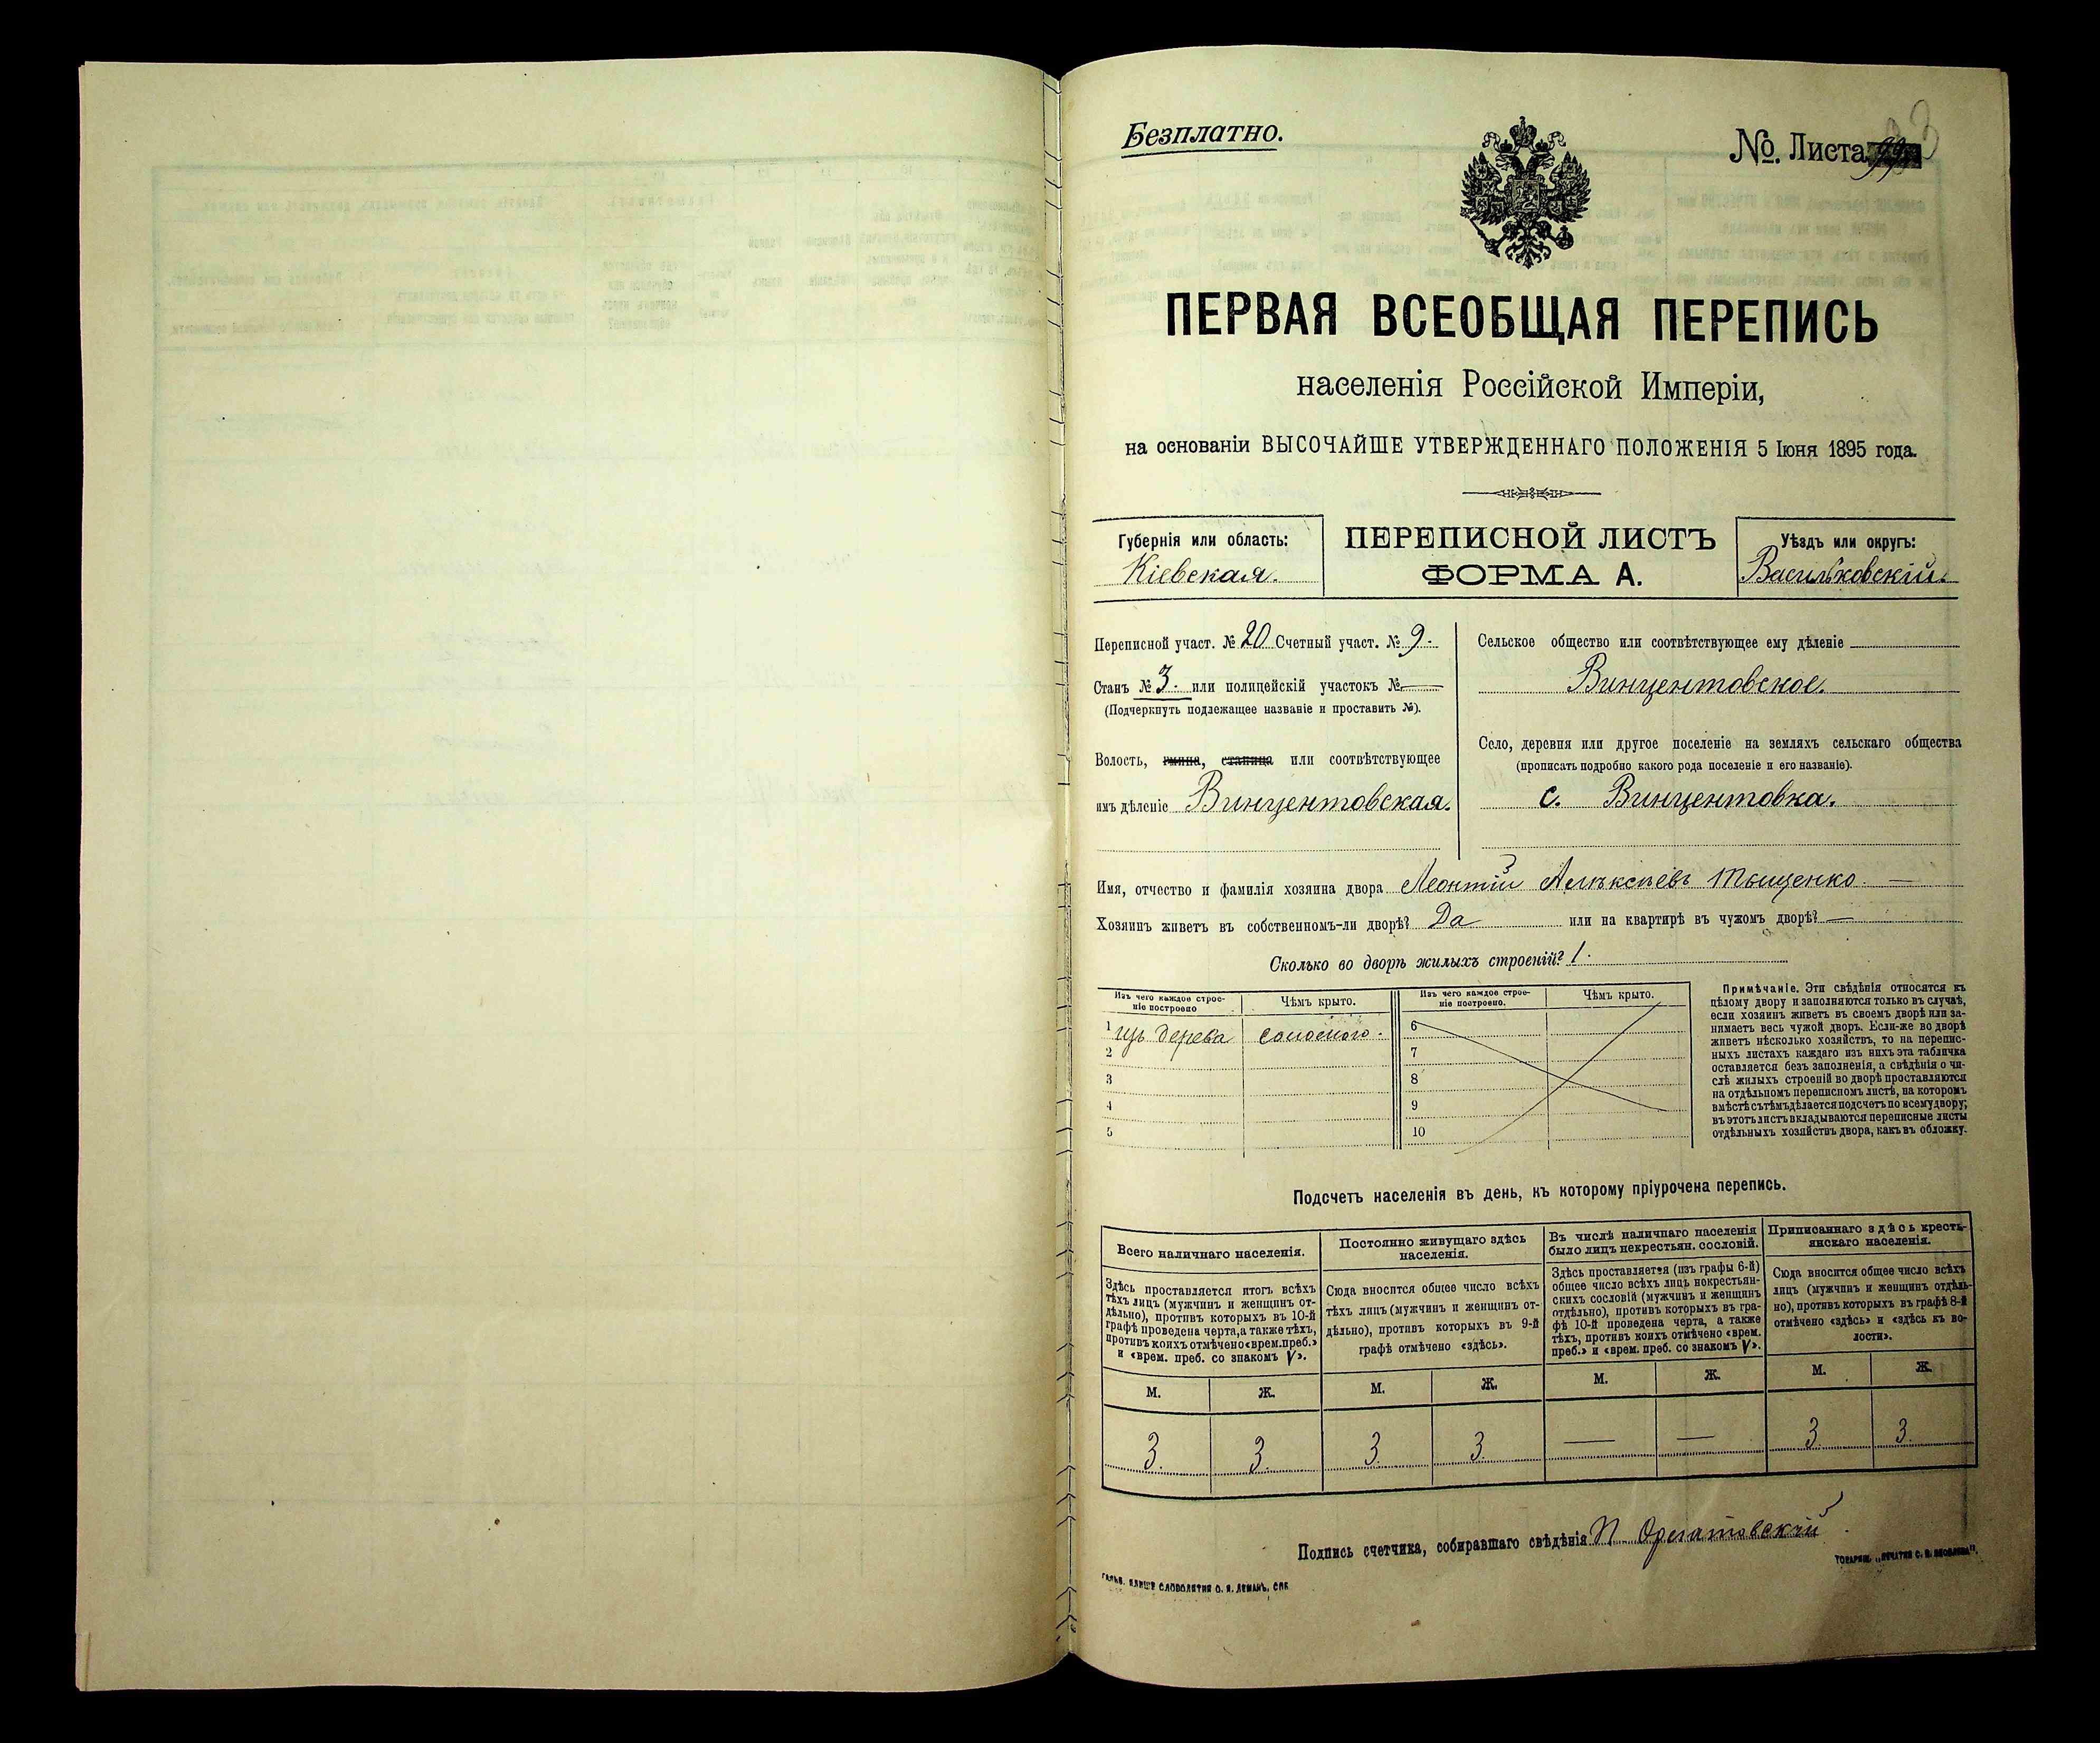 Безплатно.
№. Листа
ПЕРВАЯ ВСЕОБЩАЯ ПЕРЕПИСЬ
населенія Россійской Имперіи,
на основаніи ВЫСОЧАЙШЕ УТВЕРЖДЕННАГО ПОЛОЖЕНІЯ 5 Іюня 1895 года.
Губернія или область:
Кіевская.
ПЕРЕПИСНОЙ ЛИСТЪ
ФОРМА А.
Уѣздъ или округъ:
Васильковскій.
Переписной участ. № 20 Счетный участ. № 9.
Станъ № 3. или полицейскій участокъ № —
(Подчеркнуть подлежащее названіе и проставить №).
Волость, гмина, станица или соотвѣтствующее
имъ дѣленіе Винцентовская.
Сельское общество или соотвѣтствующее ему дѣленіе
Винцентовское.
Село, деревня или другое поселеніе на земляхъ сельскаго общества
(прописать подробно какого рода поселеніе и его названіе).
с. Винцентовка.
Имя, отчество и фамилія хозяина двора Леонтій Алѣксѣевъ Тыщенко —
Хозяинъ живетъ въ собственномъ-ли дворѣ? Да или на квартирѣ въ чужомъ дворѣ? —
Сколько во дворѣ жилыхъ строеній? 1.
Изъ чего каждое строеніе построено
Чѣмъ крыто.
Изъ чего каждое строеніе построено.
Чѣмъ крыто.
1 изъ дерева соломою.
2
3
4
5
6
7
8
9
10
Примѣчаніе. Эти свѣдѣнія относятся къ
цѣлому двору и заполняются только въ случаѣ,
если хозяинъ живетъ въ своемъ дворѣ или за-
нимаетъ весь чужой дворъ. Если-же во дворѣ
живетъ нѣсколько хозяйствъ, то на перепис-
ныхъ листахъ каждаго изъ нихъ эта табличка
оставляется безъ заполненія, а свѣдѣнія о чи-
слѣ жилыхъ строеній во дворѣ проставляются
на отдѣльномъ переписномъ листѣ, на которомъ
вмѣстѣ съ тѣмъ дѣлается подсчетъ по всему двору;
въ этотъ листъ вкладываются переписные листы
отдѣльныхъ хозяйствъ двора, какъ въ обложку.
Подсчетъ населенія въ день, къ которому пріурочена перепись.
Всего наличнаго населенія.
Здѣсь проставляется итогъ всѣхъ
тѣхъ лицъ (мужчинъ и женщинъ от-
дѣльно), противъ которыхъ въ 10-й
графѣ проведена черта, а также тѣхъ,
противъ коихъ отмѣчено «врем. преб.»
и «врем. преб. со знакомъ V».
Постоянно живущаго здѣсь
населенія.
Сюда вносится общее число всѣхъ
тѣхъ лицъ (мужчинъ и женщинъ от-
дѣльно), противъ которыхъ въ 9-й
графѣ отмѣчено «здѣсь».
Въ числѣ наличнаго населенія
было лицъ некрестьян. сословій.
Здѣсь проставляется (изъ графы 6-й)
общее число всѣхъ лицъ некрестьян-
скихъ сословій (мужчинъ и женщинъ
отдѣльно), противъ которыхъ въ гра-
фѣ 10-й проведена черта, а также
тѣхъ, противъ коихъ отмѣчено «врем.
преб.» и «врем. преб. со знакомъ V».
Приписаннаго здѣсь кресть-
янскаго населенія.
Сюда вносится общее число всѣхъ
лицъ (мужчинъ и женщинъ отдѣль-
но), противъ которыхъ въ графѣ 8-й
отмѣчено «здѣсь» и «здѣсь къ во-
лости».
М. Ж. М. Ж. М. Ж. М. Ж.
3. 3. 3. 3. — — 3. 3.
Подпись счетчика, собиравшаго свѣдѣнія П.
СЛОВОЛИТНЯ О. И. ЛЕМАНЪ, СПБ